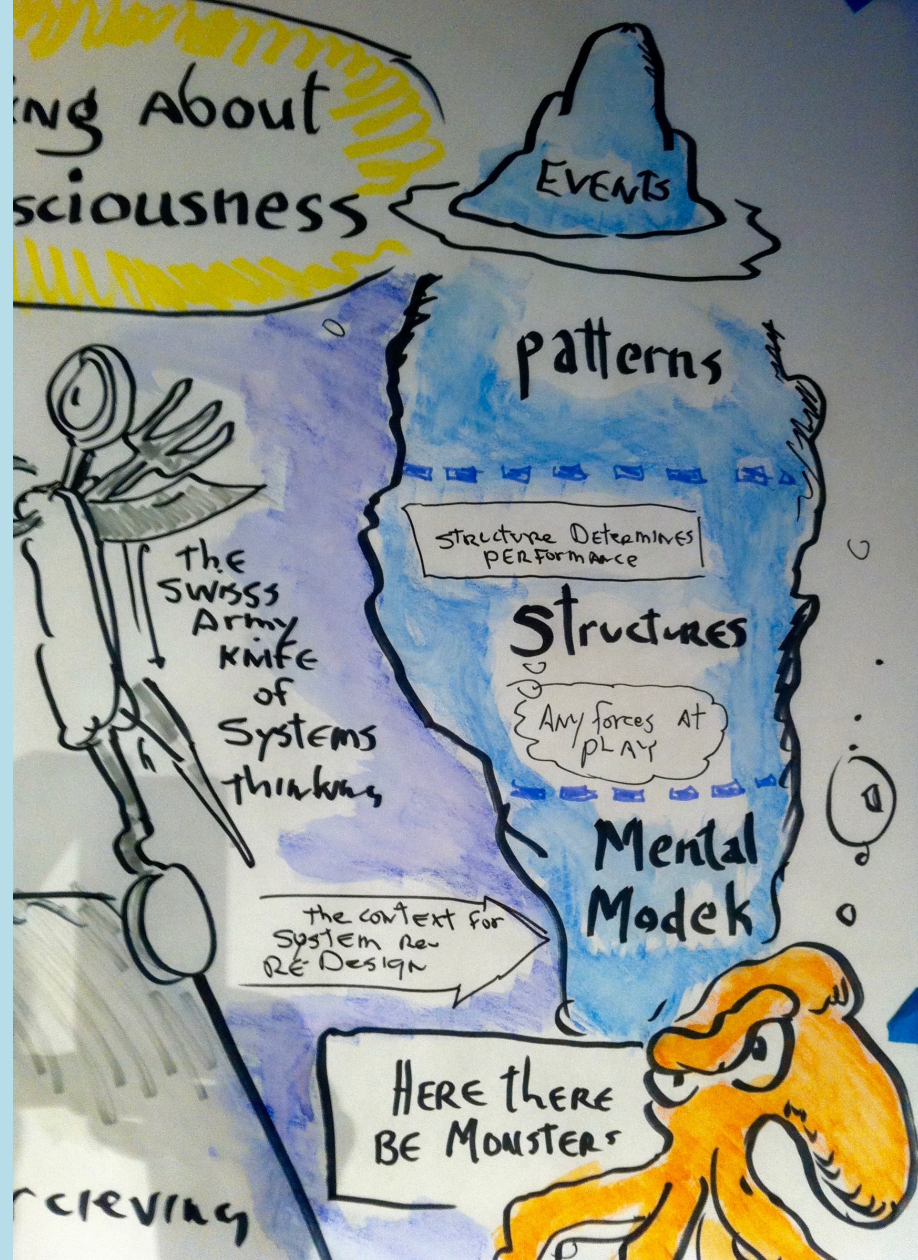 ing About
sciousness
EVENTS
patterns
Structure Determines
PERFormance
Structures
Any forces At
PLAY
the
Swisss
Army
Knife
of
Systems
thinking
Mental
Models
the context for
System Re-
RE-Design
HERE thERE
BE MonsteRs
rcieving